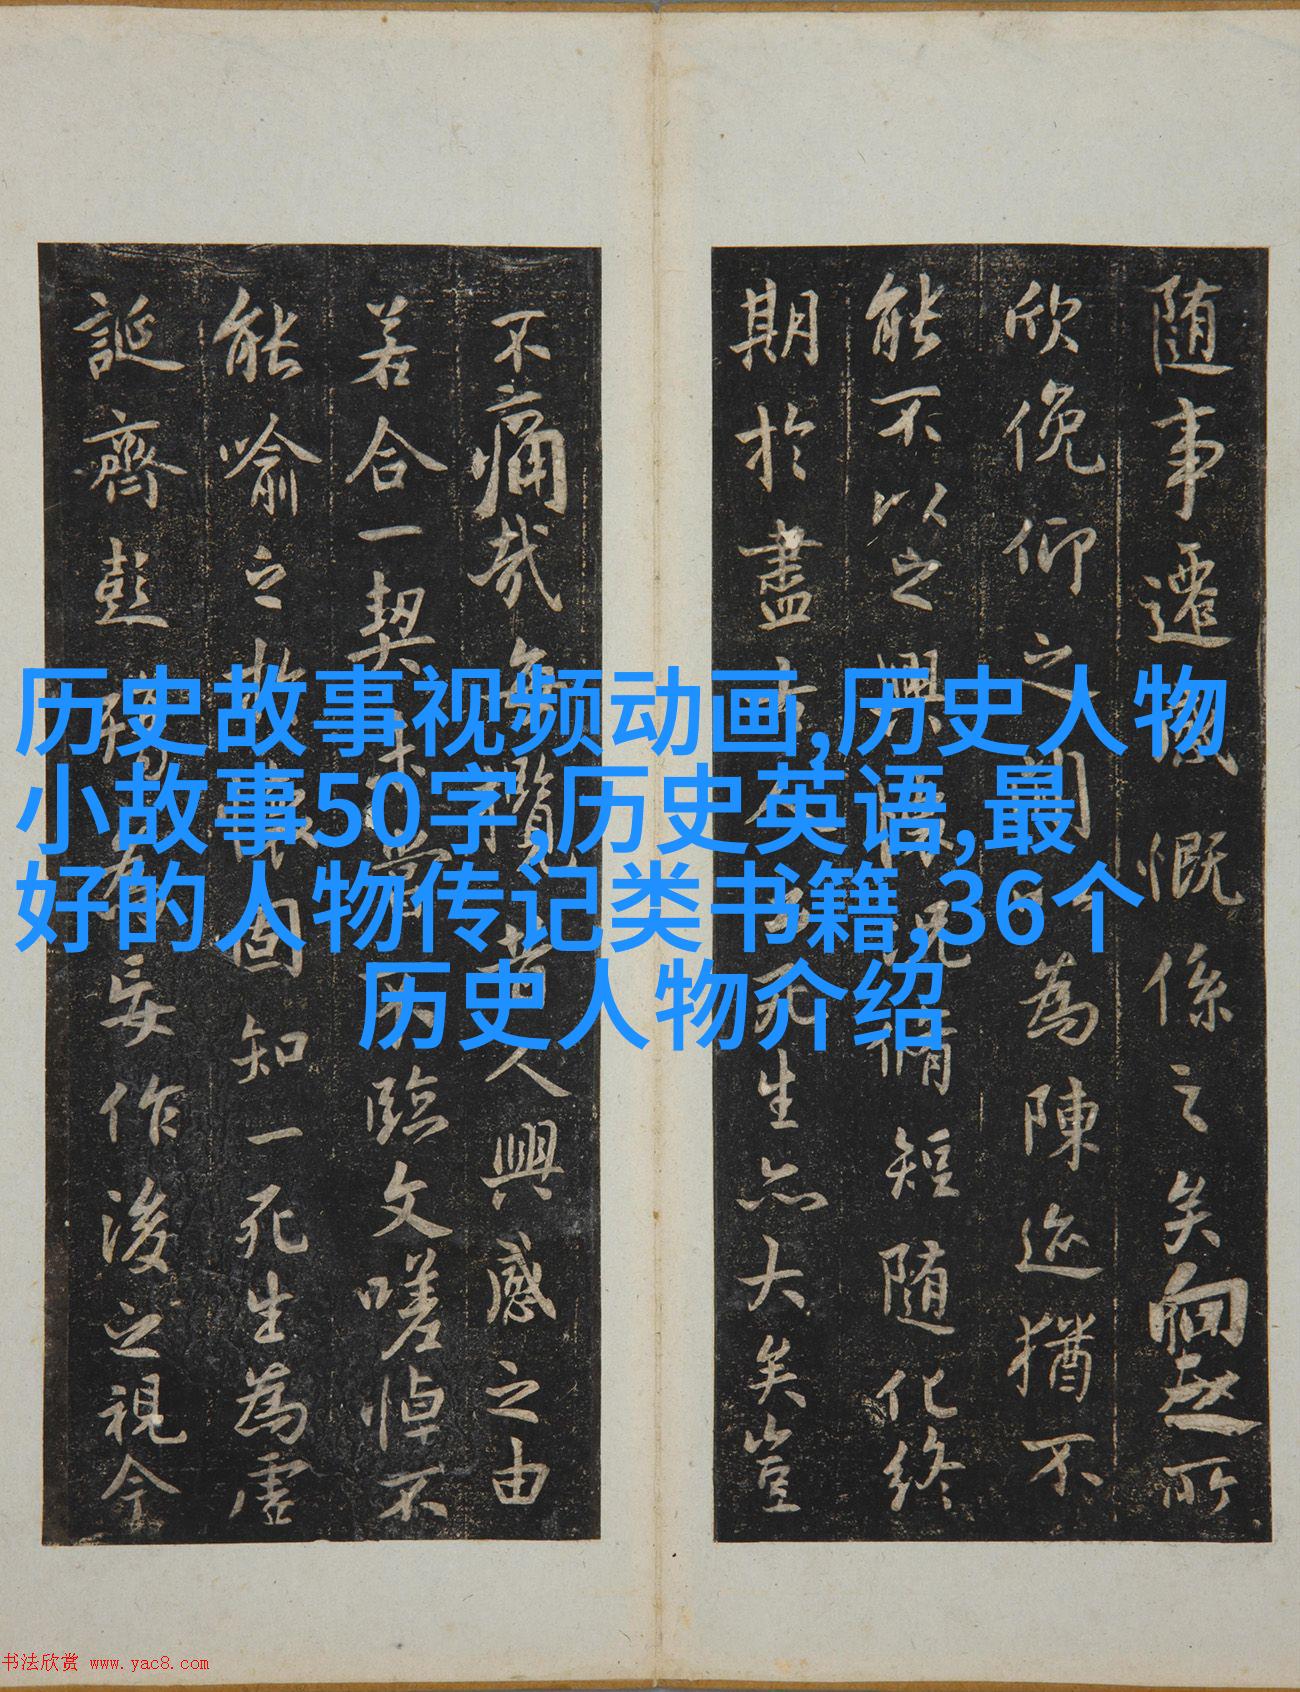 随事遷感慨係之矣向之所
欣俛仰之間以為陳迹猶不
能不以之興懷況脩短随化終
期於盡古人云死生亦大矣豈
不痛哉每攬昔人興感之由
若合一契未嘗不臨文嗟悼不
能喻之於懷固知一死生為虛
誕齊彭殤為妄作後之視今
历史故事视频动画,历史人物
小故事50字,历史英语,最
好的人物传记类书籍,36个
历史人物介绍
书法欣赏 www.yac8.com